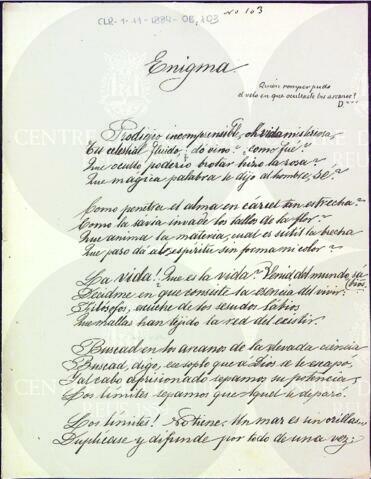 CLR-1-11-1884-OB, 103
Nº 103
Enigma
Quién romper pudo
el velo en que ocultaste tus arcanos!
D***
Prodigio incomprensible, oh vida misteriosa,
Tu celestial fluido, dó vino? como fué?
Que oculto poderío brotar hizo la rosa?
Que mágica palabra le dijo al hombre, Se?
Como penetra el alma en cárcel tan estrecha?
Como la savia invade los tallos de la flor?
Que anima la materia, cual es sutil la brecha
Que paso da al espíritu sin forma ni color?
La vida! Que es la vida? Venid, del mundo sábios,
Decidme en que consiste la esencia del vivir:
Filósofos, acuche de los sesudos labios,
Que mallas han tejido la red del existir.
Buscad en los arcanos de la elevada ciencia
Buscad, digo, un soplo que á Dios se le escapó,
Tal cabo aprisionado sepamos su potencia,
Los límites sepamos que Aquel le deparó.
Los límites! No tiene. Un mar es sin orillas
Duplícase y difunde por todo de una vez:
CENTRE DE LECTURA
REUS